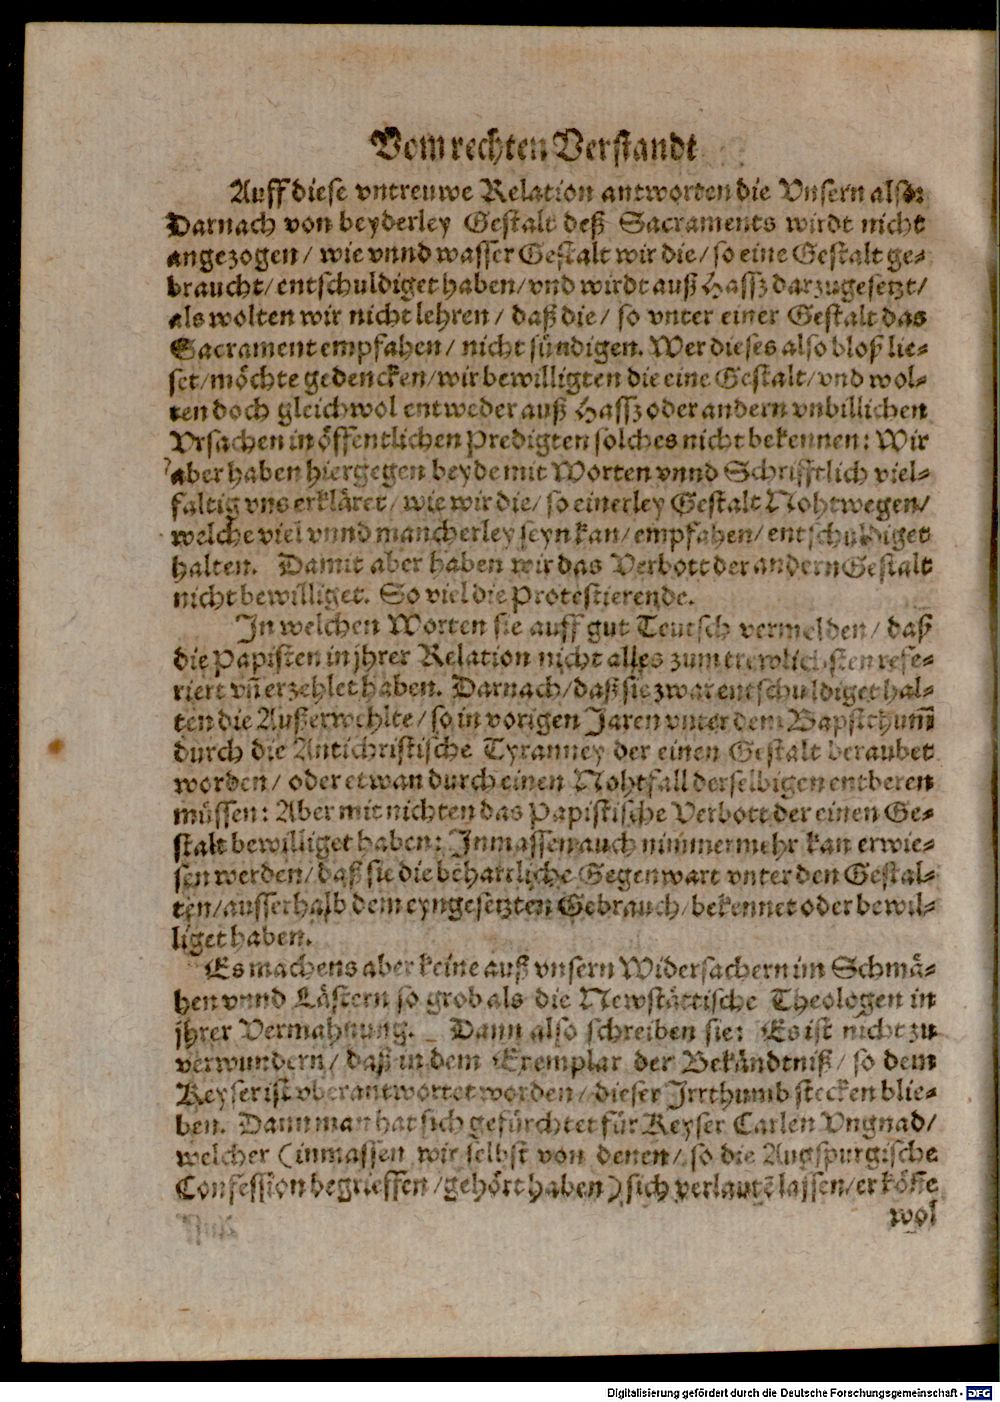 Vom rechten Verstandt
Auff diese vntreuwe Relation antworten die Vnsern also:
Darnach von beyderley Gestalt deß Sacraments wirdt nicht
angezogen / wie vnnd wasser Gestalt wir die / so eine Gestalt ge⸗
braucht / entschuldiget haben / vnd wirdt auß Hassz darzugesetzt /
als wolten wir nicht lehren / daß die / so vnter einer Gestalt das
Sacrament empfahen / nicht sündigen. Wer dieses also bloß lie⸗
set / möchte gedencken / wir bewilligten die eine Gestalt / vnd wol⸗
ten doch gleichwol entweder auß Hassz oder andern vnbillichen
Vrsachen in öffentlichen Predigten solches nicht bekennen: Wir
aber haben hiergegen beyde mit Worten vnnd Schrifftlich viel⸗
faltig vns erkläret / wie wir die / so einerley Gestalt Nohtwegen /
welche viel vnnd mancherley seyn kan / empfahen / entschuldiget
halten. Damit aber haben wir das Verbott der andern Gestalt
nicht bewilliget. So viel die Protestierende.
In welchen Worten sie auff gut Teutsch vermelden / daß
die Papisten in jhrer Relation nicht alles zum trewlichsten refe⸗
riert vñ erzehlet haben. Darnach / daß sie zwar entschuldiget hal⸗
ten die Außerwehlte / so in vorigen Jaren vnter dem Bapsthum̃
durch die Antichristische Tyranney der einen Gestalt beraubet
worden / oder etwan durch einen Nohtfall derselbigen entberen
müssen: Aber mit nichten das Papistische Verbott der einen Ge⸗
stalt bewilliget haben: Inmassen auch nimmermehr kan erwie⸗
sen werden / daß sie die beharrliche Gegenwart vnter den Gestal⸗
ten / ausserhalb dem eyngesetzten Gebrauch / bekennet oder bewil⸗
liget haben.
Es machens aber keine auß vnsern Widersachern im Schmä⸗
hen vnnd Lästern so grob als die Newstättische Theologen in
jhrer Vermahnung. Dann also schreiben sie: Es ist nicht zu
verwundern / daß in dem Exemplar der Bekändtniß / so dem
Keyser ist vberantwortet worden / dieser Irrthumb stecken blie⸗
ben. Dann man hat sich gefürchtet für Keyser Carlen Vngnad /
welcher (inmassen wir selbst von denen / so die Augspurgische
Confession begrieffen / gehört haben) sich verlautē lassen / er köñe
wol
Digitalisierung gefördert durch die Deutsche Forschungsgemeinschaft - DFG